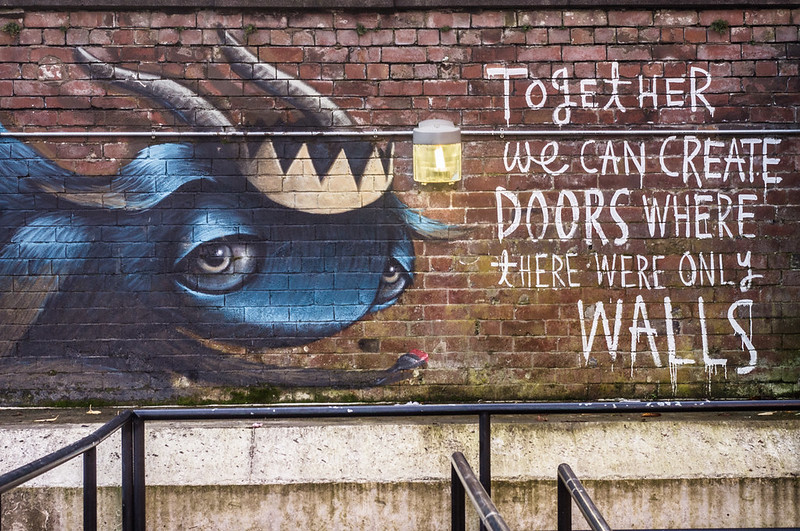 TOgETHER
we CAN CREATE
DOORS WHERE
tHERE WERE ONLy
WALLS